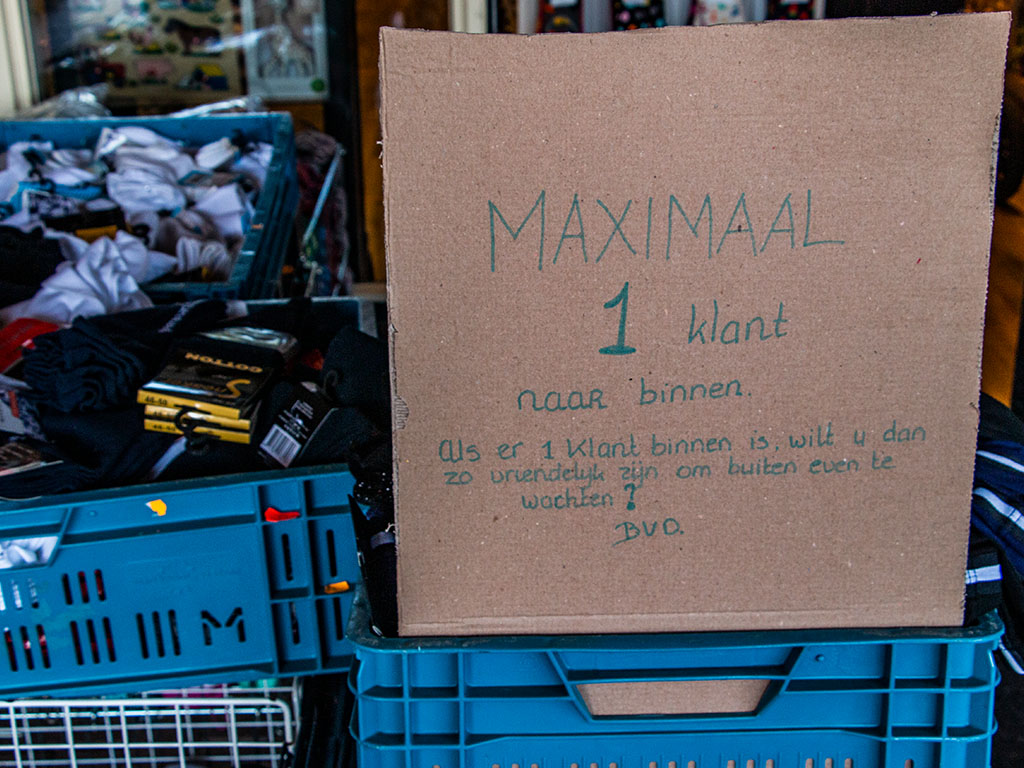 MAXIMAAL
1 klant
naar binnen.
Als er 1 klant binnen is, wilt u dan
zo vriendelijk zijn om buiten even te
wachten ?
BVD.
COTTON
46-50
M